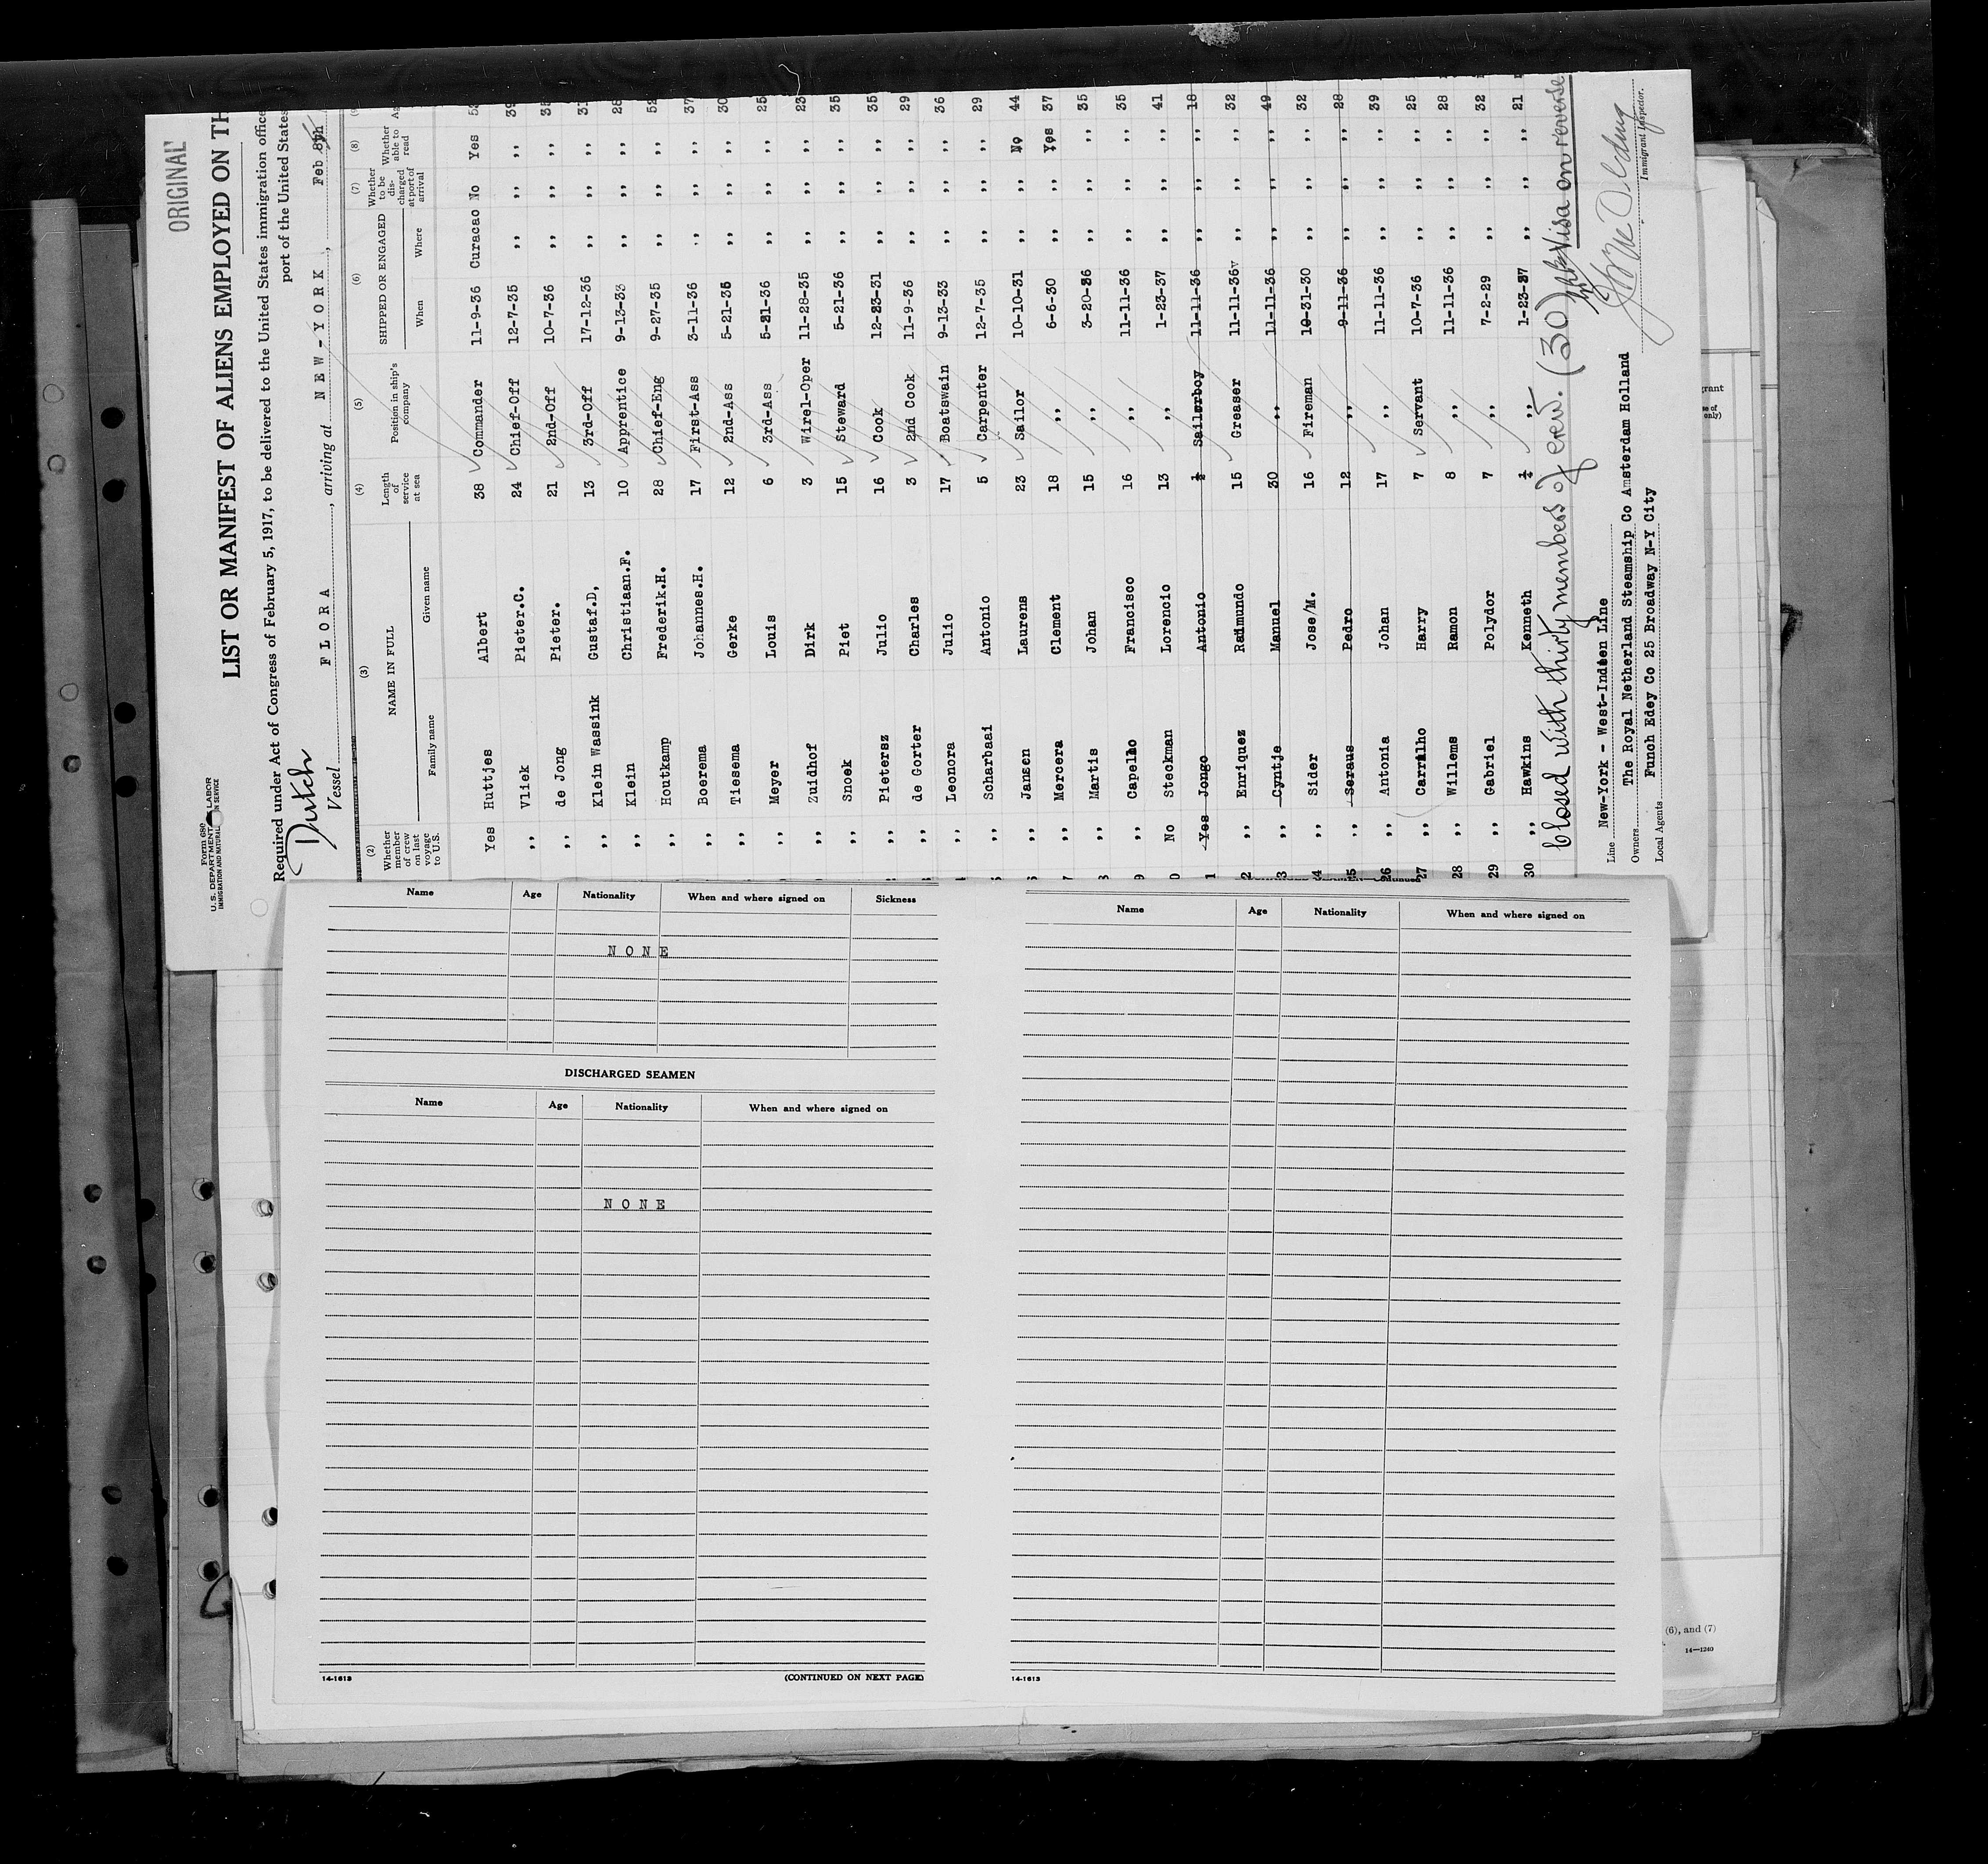 ORIGINAL
Form 680
U. S. DEPARTMENT LABOR
IMMIGRATION AND IN SERVICE
LIST OR MANIFEST OF ALIENS EMPLOYED ON TH
Required under Act of Congress of February 5, 1917, to be delivered to the United States immigration office
port of the United States
Dutch
Vessel FLORA, arriving at NEW-YORK, Feb
(2) (3) (4) (5) (6) (7) (8)
Whether member of crew on last voyage to U.S. NAME IN FULL Length of service at sea Position in ship's company SHIPPED OR ENGAGED Whether to be discharged at port of arrival Whether able to read
Family name Given name When Where
Yes Huttjes Albert 38 Commander 11-9-36 Curacao No Yes
,, Vliek Pieter.C. 24 Chief-Off 12-7-35 ,, ,, ,,
,, de Jong Pieter. 21 2nd-Off 10-7-36 ,, ,, ,,
,, Klein Wassink Gustaf.D, 13 3rd-Off 17-12-36 ,, ,, ,,
,, Klein Christiaan.F. 10 Apprentice 9-13-33 ,, ,, ,, 28
,, Houtkamp Frederik.H. 28 Chief-Eng 9-27-35 ,, ,, ,, 52
,, Boerema Johannes.H. 17 First-Ass 3-11-36 ,, ,, ,, 37
,, Tiesema Gerke 12 2nd-Ass 5-21-36 ,, ,, ,, 30
,, Meyer Louis 6 3rd-Ass 5-21-36 ,, ,, ,, 25
,, Zuidhof Dirk 3 Wirel-Oper 11-28-35 ,, ,, ,, 23
,, Snoek Piet 15 Steward 5-21-36 ,, ,, ,, 35
,, Pietersz Julio 16 Cook 12-23-31 ,, ,, ,, 35
,, de Gorter Charles 3 2nd Cook 11-9-36 ,, ,, ,, 29
,, Leonora Julio 17 Boatswain 9-13-33 ,, ,, ,, 36
,, Scharbaai Antonio 5 Carpenter 12-7-35 ,, ,, ,, 29
,, Jansen Laurens 23 Sailor 10-10-31 ,, ,, No 44
,, Mercera Clement 18 ,, 6-6-30 ,, ,, Yes 37
,, Martis Johan 15 ,, 3-20-36 ,, ,, ,, 35
,, Capelho Francisco 16 ,, 11-11-36 ,, ,, ,, 35
No Steckman Lorencio 13 ,, 1-23-37 ,, ,, ,, 41
Yes Jongo Antonio ½ Sailerboy 11-11-36 ,, ,, ,, 18
,, Enriquez Raimundo 15 Greaser 11-11-36 ,, ,, ,, 32
,, Cyntje Manuel 30 ,, 11-11-36 ,, ,, ,, 49
,, Sider Jose/M. 16 Fireman 10-31-30 ,, ,, ,, 32
,, Seraus Pedro 12 ,, 9-11-36 ,, ,, ,, 28
26 ,, Antonia Johan 17 ,, 11-11-36 ,, ,, ,, 39
27 ,, Carrilho Harry 7 Servant 10-7-36 ,, ,, ,, 25
28 ,, Willems Ramon 8 ,, 11-11-36 ,, ,, ,, 28
29 ,, Gabriel Polydor 7 ,, 7-2-29 ,, ,, ,, 32
30 ,, Hawkins Kenneth ½ ,, 1-23-37 ,, ,, ,, 21
Closed with thirty members of crew. (30) Visa on reverse
Line New-York - West-Indien Line
Owners The Royal Netherland Steamship Co Amsterdam Holland
Local Agents Funch Edey Co 25 Broadway N-Y City
Immigrant Inspector.
Name Age Nationality When and where signed on Sickness
NONE
DISCHARGED SEAMEN
Name Age Nationality When and where signed on
NONE
14-1613 (CONTINUED ON NEXT PAGE)
Name Age Nationality When and where signed on
14-1613
(6), and (7)
14—1240